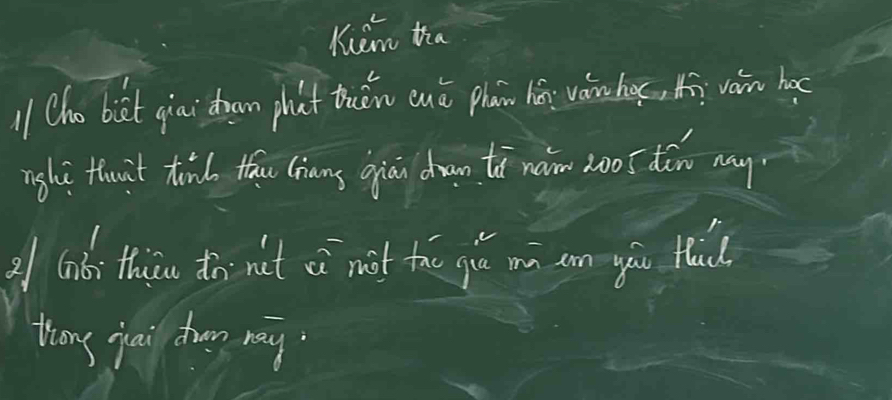 Kiểm tra
1/ Cho biết giai đoạn phát triển của phân hội văn học, Hội văn học
nghệ thuật tỉnh Hậu Giang giai đoạn từ năm 2005 đến nay.
2/ Giới thiệu đôi nét về một tác giả mà em yêu thích
trong giai đoạn này.